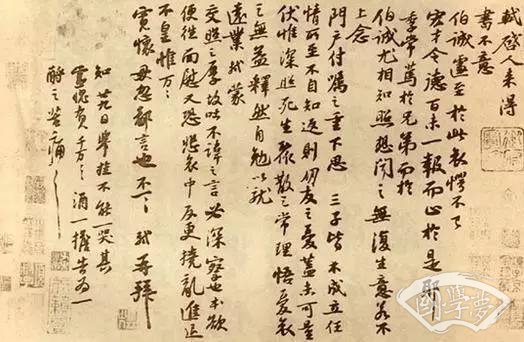 軾啓人來得
書不意
伯誠遽至於此哀愕不已
宏才令德百未一報而止於是耶
季常篤於兄弟而於
伯誠尤相知照想聞之無復生意若不
上念
門戶付囑之重下思三子皆不成立任
情所至不自知返則朋友之憂蓋未可量
伏惟深照死生聚散之常理悟憂哀
之無益釋然自勉以就
遠業軾蒙
交照之厚故吐不諱之言必深察也本欲
便往面慰又恐悲哀中反更撓亂進退
不皇惟萬萬
寬懷毋忽鄙言也不一一軾再拜
知廿九日舉掛不能一哭其
靈愧負千萬千萬酒一擔告為一
酹之苦痛苦痛
國學夢